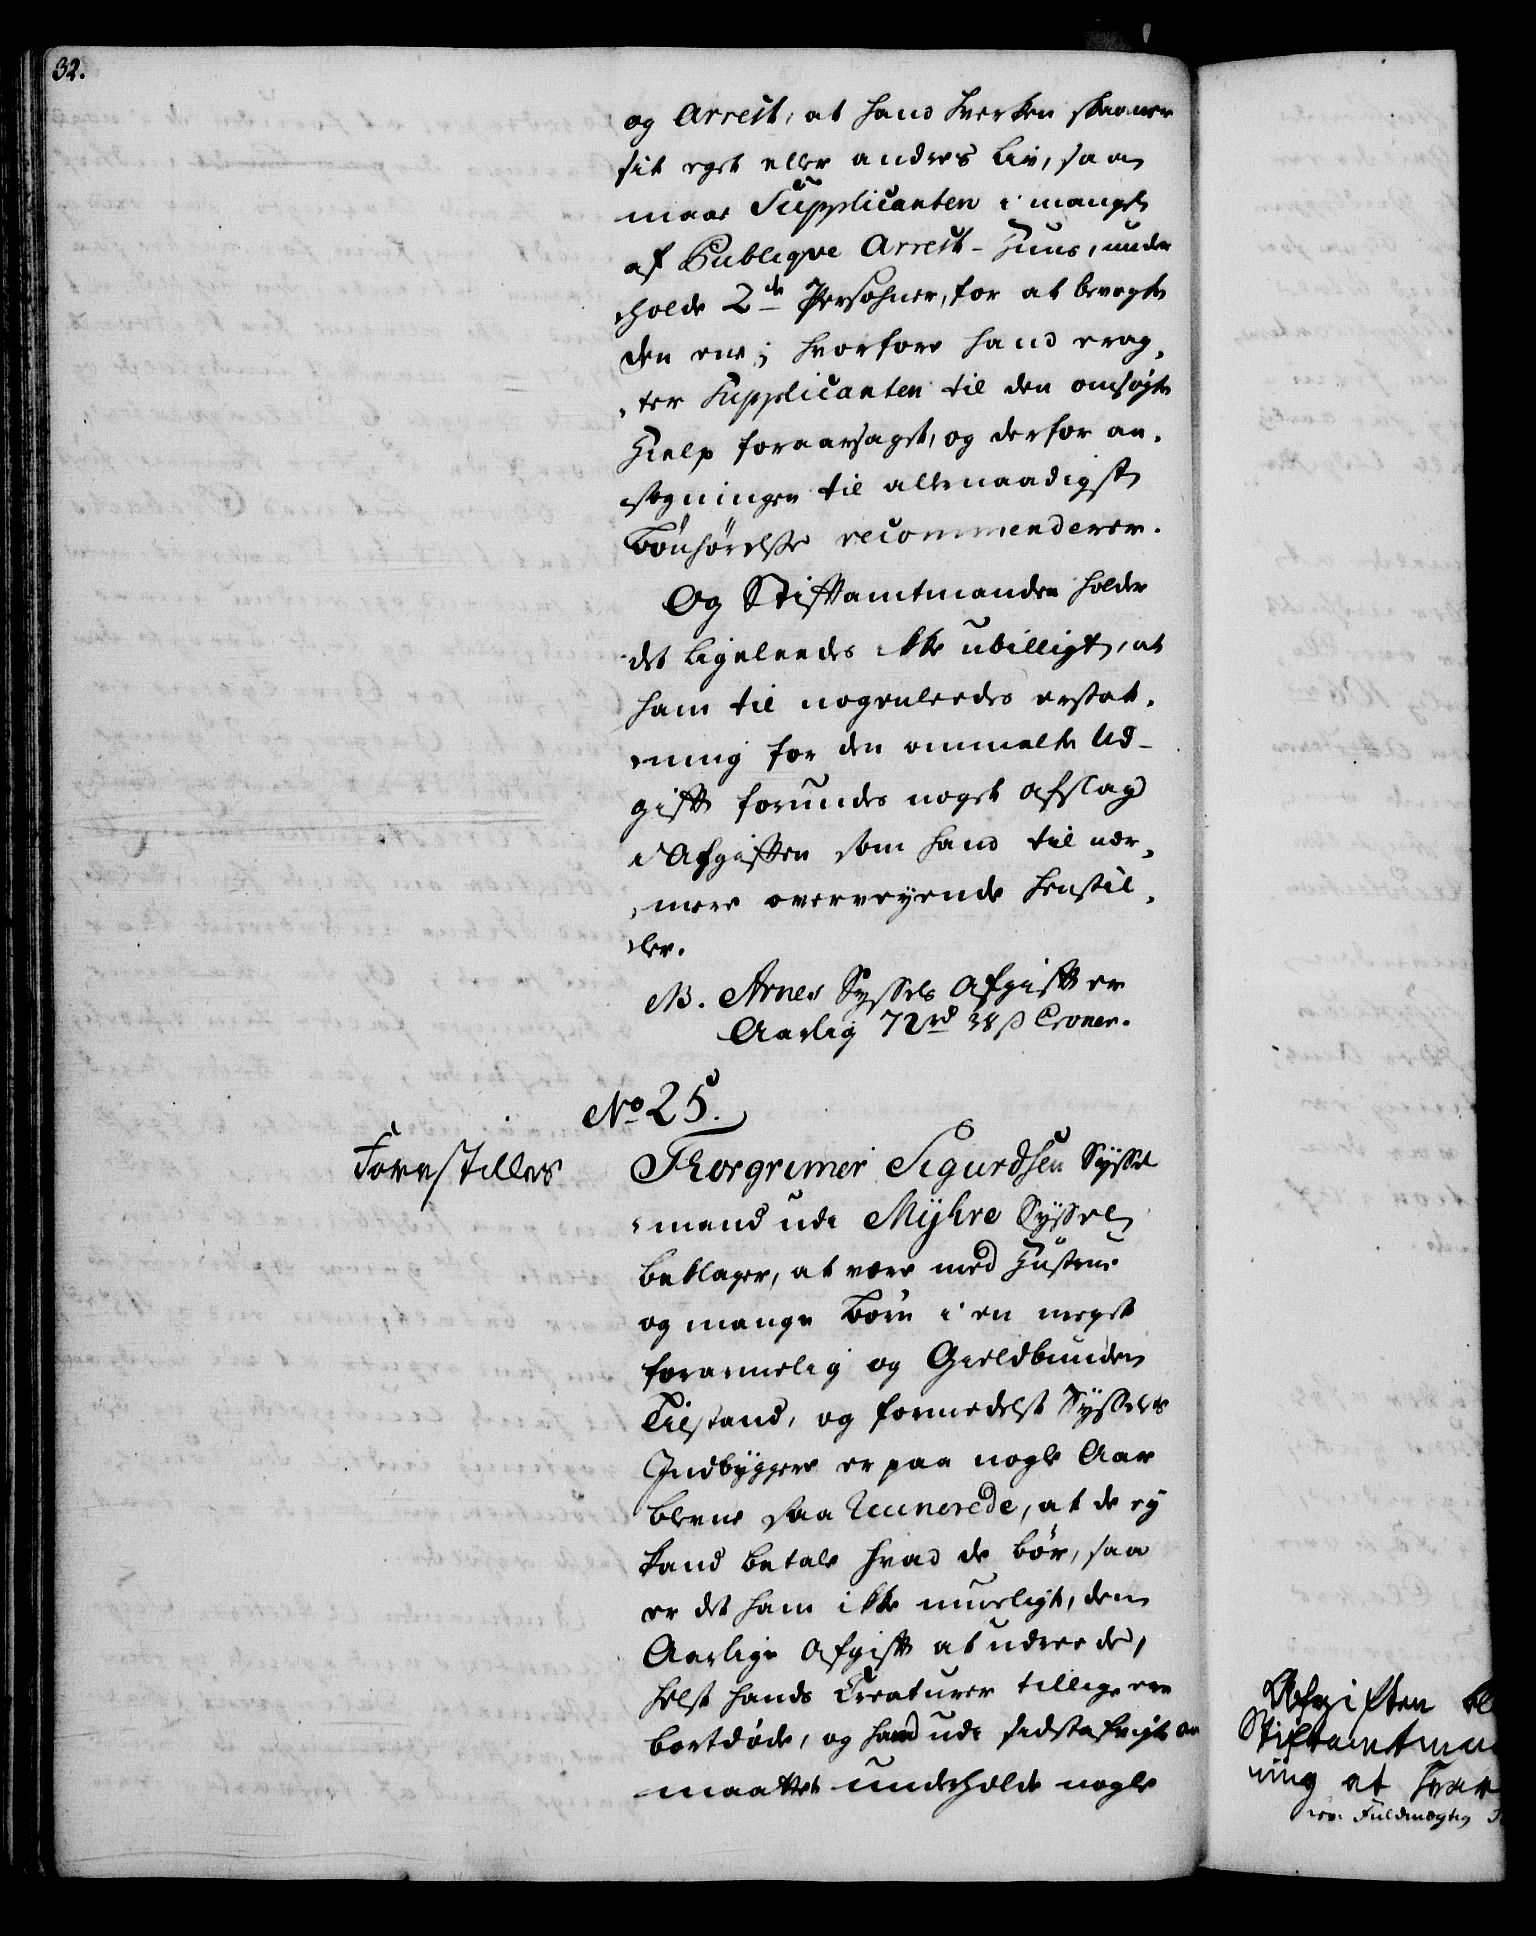 32.
og Arrest, at hand hverken skaaner
sit eget eller andres Liv, saa
maae Supplicanten i mangel
af Publiqve Arrest-Huus, under
holde 2de Persohner, for at bevogte
den ene; hvorfore hand erag,
,ter Supplicanten til den omsøgte
Hielp foraarsaget, og derfor an,
søgningen til allernaadigst
Bønhørelse recommenderer.
Og Stiftamtmanden holder
det ligeleedes ikke ubilligt, at
ham til nogenleedes erstat,
,ning for den ommelte Ud-
gift forundes noget afslag
i Afgiften som hand til nær,
,mere overveyende henstil,
,ler.
NB. Arnes Syssels Afgift er
Aarlig 72rd 38 ß Croner.
No 25.
Forestilles
Thorgrimer Sigurdsen Syssel
,mand udi Myhre Syssel
beklager, at være med Hustrue
og mange Børn i en meget
forarmelig og Gieldbunden
Tilstand, og formedelst Syssels
Indbyggere er paa nogle Aar
blevne saa ruinerede, at de ey
kand betale hvad de bør, saa
er det ham ikke mueligt, den
Aarlige Afgift at udreede,
helst hands Creaturer tillige ere
bortdøde, og hand udi sidstafvigte Aar
maattet underholde nogle
Afgiften bl
Stiftamtman
ning at svar
Fuldmægtig